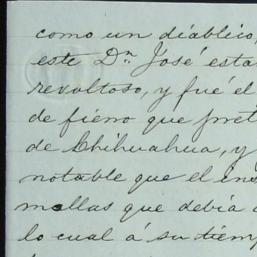 como un diáblico,
este Dn. José esta
revoltoso, y fué el
de fierro que pret
de Chihuahua, y
notable que el ins
mellas que debia
lo cual á su tiemp